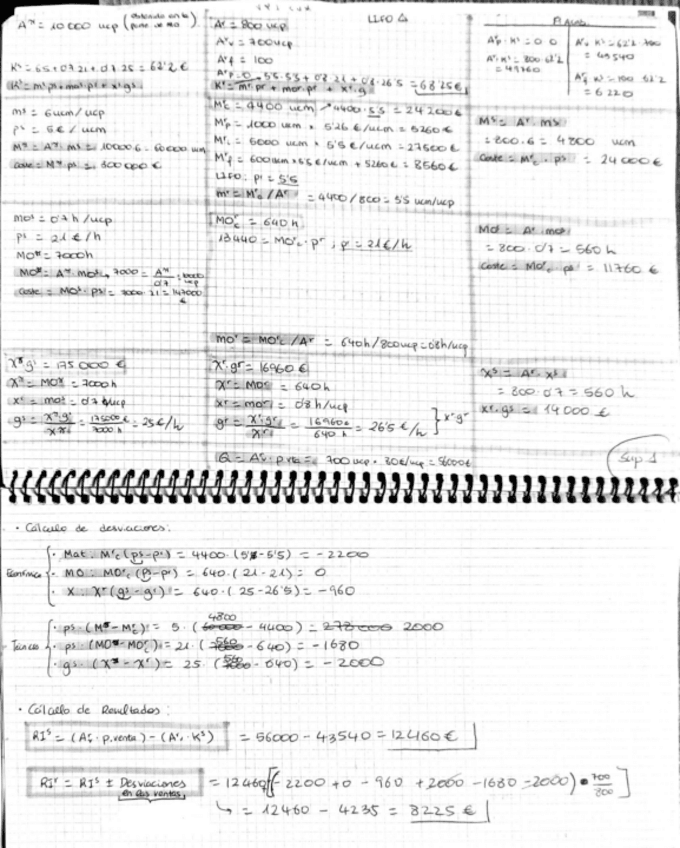 A^π = 10000 ucp (
K^s = 6·5 + 0'7·21 + 0'7·25 = 62'2 €
K^s = m^s·p^s + mo^s·p^s + x^s·g^s
m^s = 6 ucm/ucp
p^s = 5 € / ucm
M^π = A^π · m^s = 10000·6 = 60000 ucm
Coste = M^π · p^s = 300000 €
mo^s = 0'7 h/ucp
p^s = 21 €/h
MO^π = 7000h
MO^π = A^π · mo^s, 7000 = A^π / 0'7 = 10000 ucp
Coste = MO^s · p^s = 7000·21 = 147000 €
X^π g^s = 175000 €
X^π = MO^π = 7000 h
x^s = mo^s = 0'7 h/ucp
g^s = X^π g^s / X^π = 175000 € / 7000 h = 25 €/h
LIFO
A^r = 800 ucp
A^r v = 700 ucp
A^r f = 100
A^r p = 0
5'5·5'5 + 0'8·21 + 0'8·26'5 = 68'25 €
K^r = m^r·p^r + mo^r·p^r + x^r·g^r
M^r c = 4400 ucm → 4400·5'5 = 24200 €
M^r p = 1000 ucm × 5'26 €/ucm = 5260 €
M^r i = 5000 ucm × 5'5 €/ucm = 27500 €
M^r f = 600 ucm × 5'5 €/ucm + 5260 € = 8560 €
LIFO: p^r = 5'5
m^r = M^r c / A^r = 4400/800 = 5'5 ucm/ucp
MO^r c = 640 h
13440 = MO^r c · p^r ; p^r = 21 €/h
mo^r = MO^r c / A^r = 640h/800ucp = 0'8 h/ucp
X^r · g^r = 16960 €
X^r = MO^r c = 640 h
x^r = mo^r = 0'8 h/ucp
g^r = X^r·g^r / X^r = 16960 € / 640 h = 26'5 €/h } x^r g^r
Q = A^r v · p.vta = 700 ucp · 80€/ucp = 56000 €
A^r p · K^s = 0·0
A^r · K^s = 800·62'2 = 49760
A^r v · K^s = 62'2·700 = 43540
A^r f · K^s = 100·62'2 = 6220
M^s = A^r · m^s
= 800·6 = 4800 ucm
Coste = M^r c · p^s = 24000 €
MO^s = A^r · mo^s
= 800·0'7 = 560 h
Coste = MO^r c · p^s = 11760 €
X^s = A^r · x^s
= 800·0'7 = 560 h
x^r · g^s = 14000 €
Sup 1
· Cálculo de desviaciones:
Económica
· Mat: M^r c (p^s - p^r) = 4400·(5 - 5'5) = -2200
· MO: MO^r c (p^s - p^r) = 640·(21 - 21) = 0
· X: X^r (g^s - g^r) = 640·(25 - 26'5) = -960
Técnicas
· p^s · (M^s - M^r c) = 5·(4800 - 4400) = 2000
· p^s · (MO^s - MO^r c) = 21·(560 - 640) = -1680
· g^s · (X^s - X^r) = 25·(560 - 640) = -2000
· Cálculo de Resultados:
RI^s = (A^r v · p.venta) - (A^r v · K^s) = 56000 - 43540 = 12460 €
RI^r = RI^s ± Desviaciones en las ventas = 12460 [(-2200 + 0 - 960 + 2000 - 1680 - 2000) · 700/800]
↳ = 12460 - 4235 = 8225 €